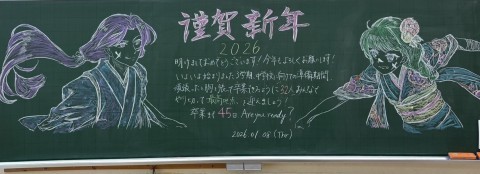 謹賀新年
2026
明けましておめでとうございます！今年もよろしくお願いします！
いよいよ始まりました3学期。中学校に向けての準備期間
頑張った 卒業 ように32人みんなで
やりきって 迎えましょう！
卒業まで45日 Are you ready?
2026.01.08 (Thu)